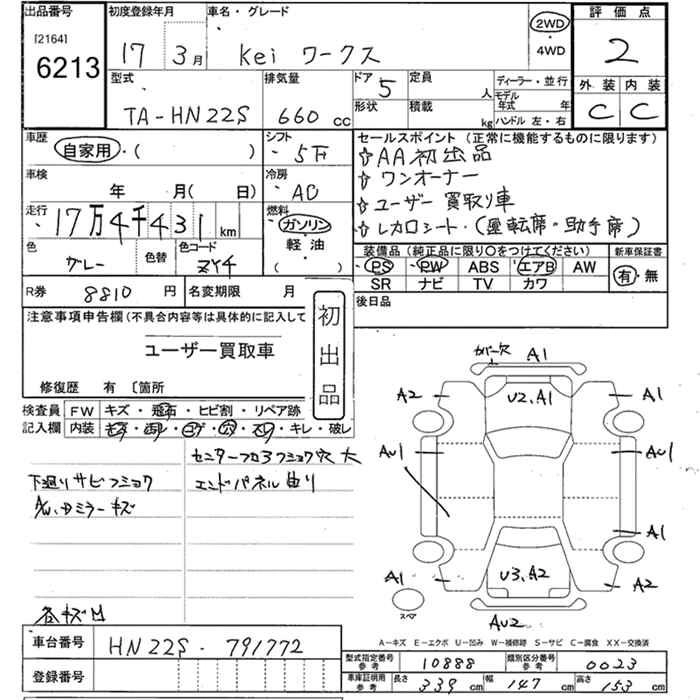 出品番号
[2164]
6213
初度登録年月
17 3月
車名・グレード
Kei ワークス
2WD
・
4WD
評価点
2
外装 内装
C C
型式
TA-HN22S
排気量
660 cc
ドア
5
形状
定員
人
積載
kg
ディーラー・並行
モデル年式 年
ハンドル 左・右
車歴
自家用・( )
シフト
・5F
車検
年 月( 日)
冷房
・AC
走行
・17万4千431 km
燃料
ガソリン
軽油
( )
色
グレー
色替
色コード
ZY4
セールスポイント(正常に機能するものに限ります)
☆AA初出品
☆ワンオーナー
☆ユーザー買取り車
☆レカロシート・(運転席・助手席)
装備品(純正品に限り○をつけてください)
新車保証書
PS PW ABS エアB AW
SR ナビ TV カワ
有・無
R券 8810 円
名変期限 月
後日品
注意事項申告欄(不具合内容等は具体的に記入して
ユーザー買取車
初出品
修復歴 有 〔箇所
検査員記入欄
FW キズ・飛石・ヒビ割・リペア跡
内装 キズ・ヨゴレ・コゲ・穴・スレ・キレ・破レ
センターフロアフショク穴大
下廻りサビフショク
エンドパネル曲り
A/W、ドミラーキズ
各キズ凹
カバー欠 A1
A2
U2.A1
A1
AU1
AU1
A1
A1
U3.A2
A2
スペア
AU2
A―キズ E―エクボ U―凹み W―補修跡 S―サビ C―腐食 XX―交換済
車台番号 HN22S-791772
登録番号
型式指定番号参考 10888
類別区分番号参考 0023
車庫証明用参考 長さ 339 cm 幅 147 cm 高さ 153 cm